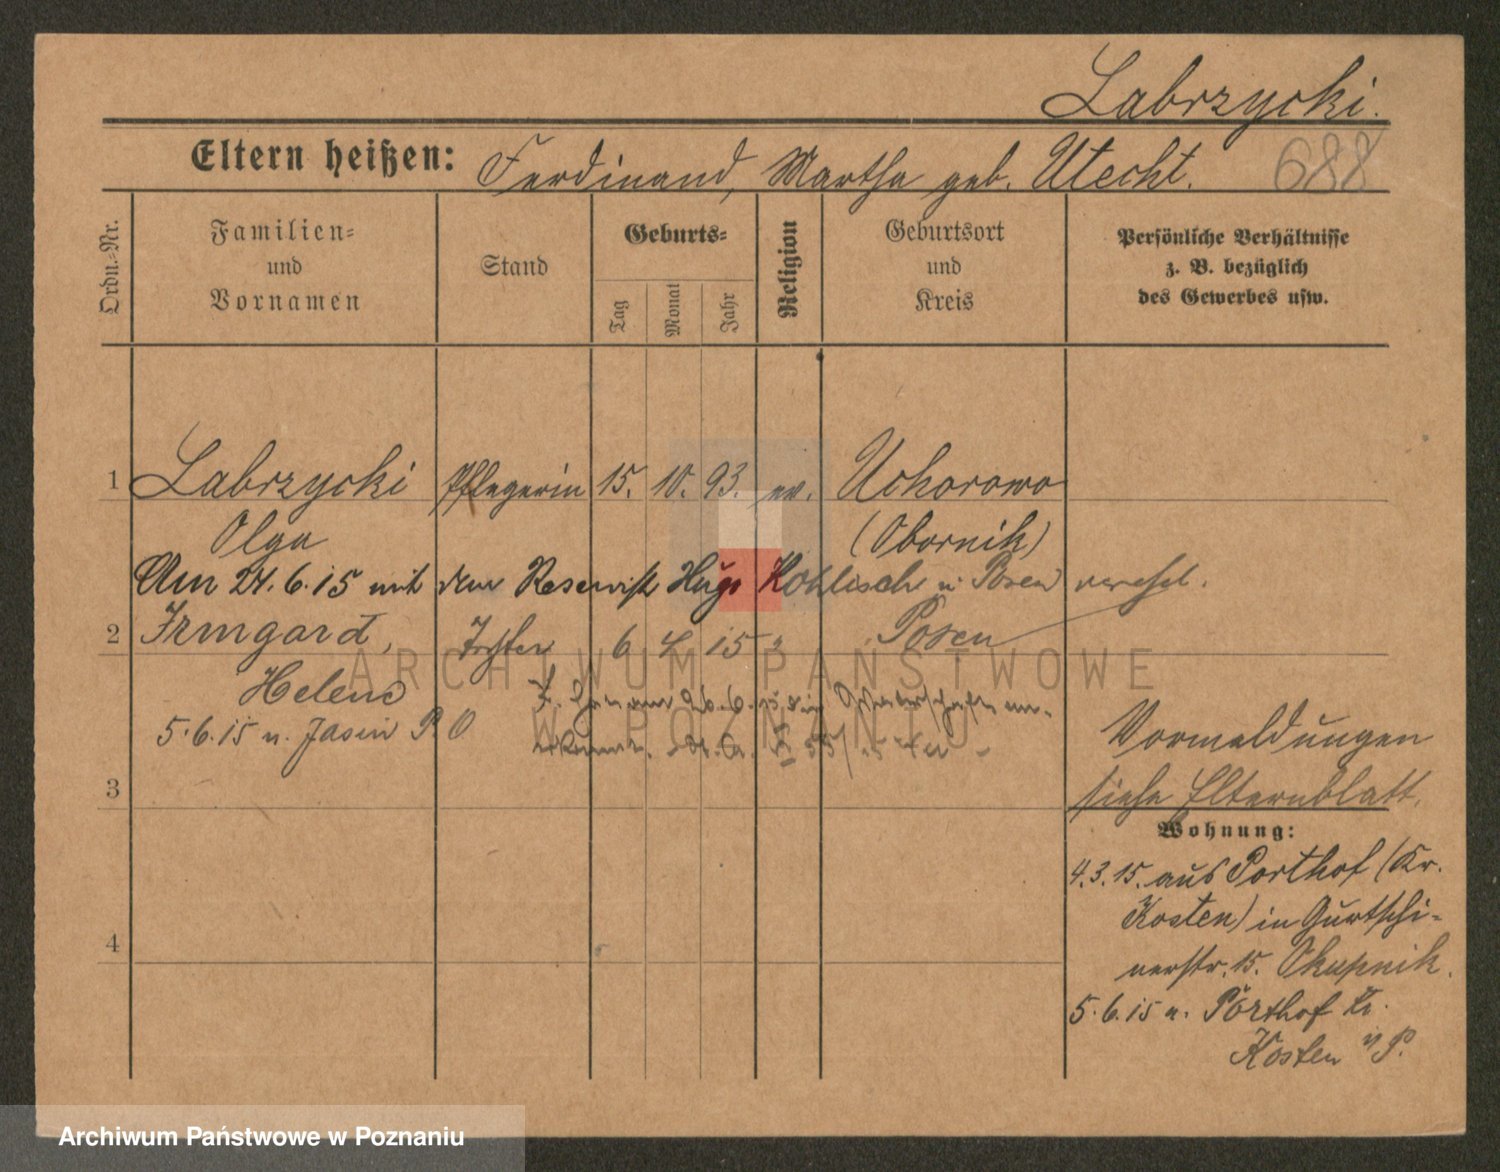 Labrzycki.
Eltern heißen: Ferdinand, Martha geb. Utecht. 688
Ordn.-Nr.
Familien- und Vornamen
Stand
Geburts-
Tag
Monat
Jahr
Religion
Geburtsort und Kreis
Persönliche Verhältnisse z. B. bezüglich des Gewerbes usw.
1 Labrzycki Pflegerin 15. 10. 93. ev. Uchorowo
Olga (Obornik)
Am 24.6.15 mit dem Reservist Hugo Kohlisch in Posen verehel.
2 Irmgard, Tochter 6 4 15 " Posen
Helene
5.6.15 n. Jasin P. O
26.6.15
3
Vormeldungen
siehe Elternblatt.
Wohnung:
4.3.15. aus Porthof (Kr.
Kosten) in Gurtschi-
nerstr. 15. Skupnik.
5.6.15 n. Porthof Kr.
Kosten i/P.
4
ARCHIWUM PAŃSTWOWE
W POZNANIU
Archiwum Państwowe w Poznaniu